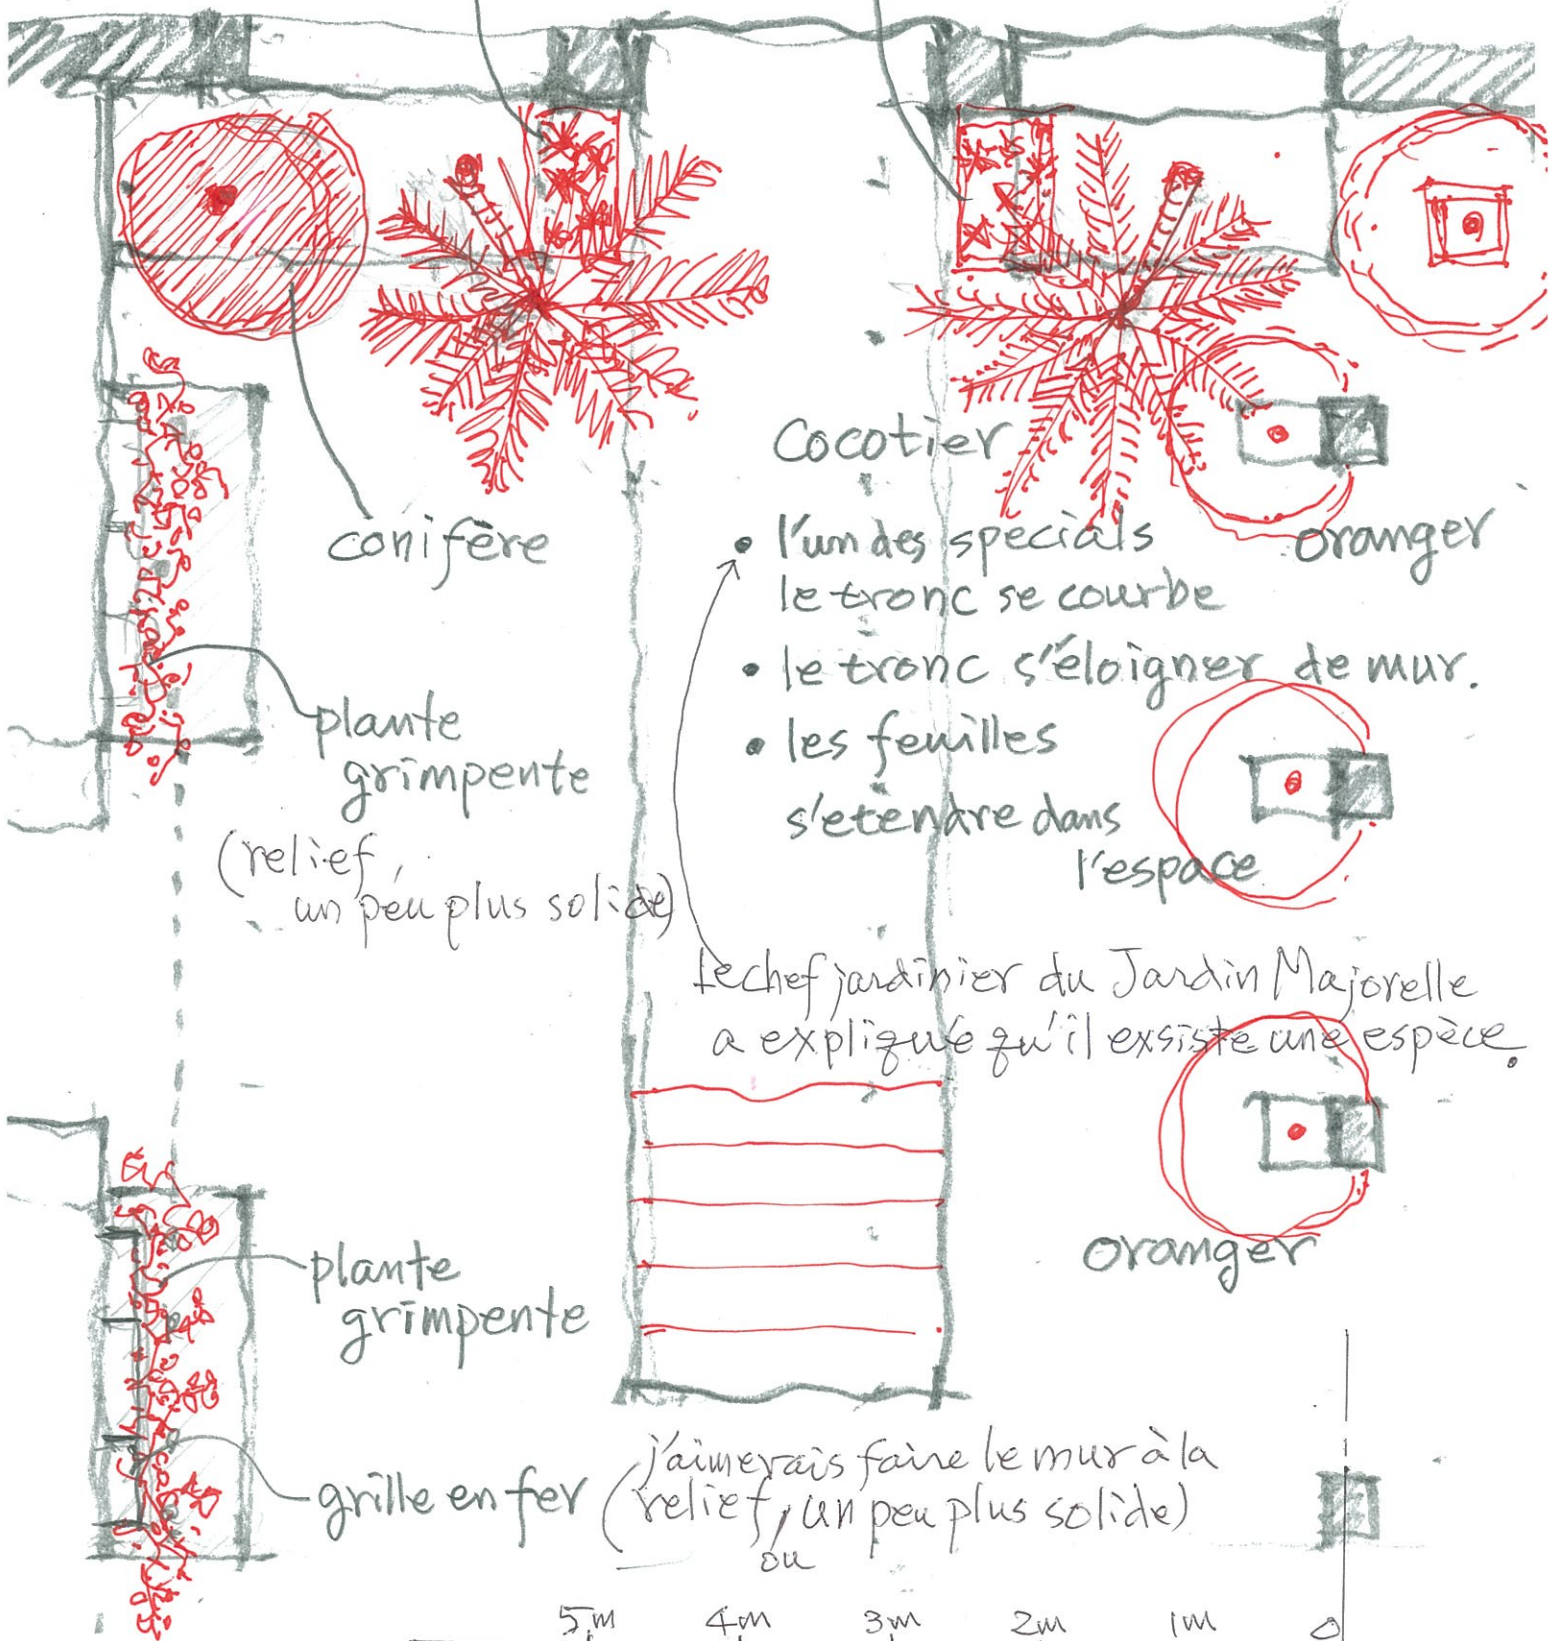 Cocotier
• l'un des specials
le tronc se courbe
• le tronc s'éloigner de mur.
• les feuilles
s'etendre dans
l'espace
conifère
oranger
plante
grimpente
(relief,
un peu plus solide)
Le chef jardinier du Jardin Majorelle
a expliqué qu'il exsiste une espèce.
oranger
plante
grimpente
grille en fer
(j'aimerais faire le mur à la
relief, un peu plus solide)
ou
5m 4m 3m 2m 1m 0